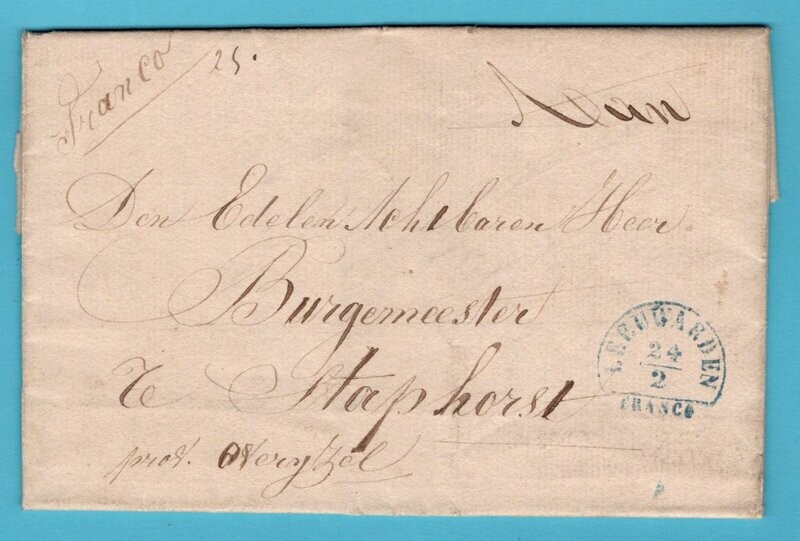 Franco
25.
Aan
Den Edelen Achtbaren Heer
Burgemeester
te Staphorst
prov. Overyssel
LEEUWARDEN
24
2
FRANCO